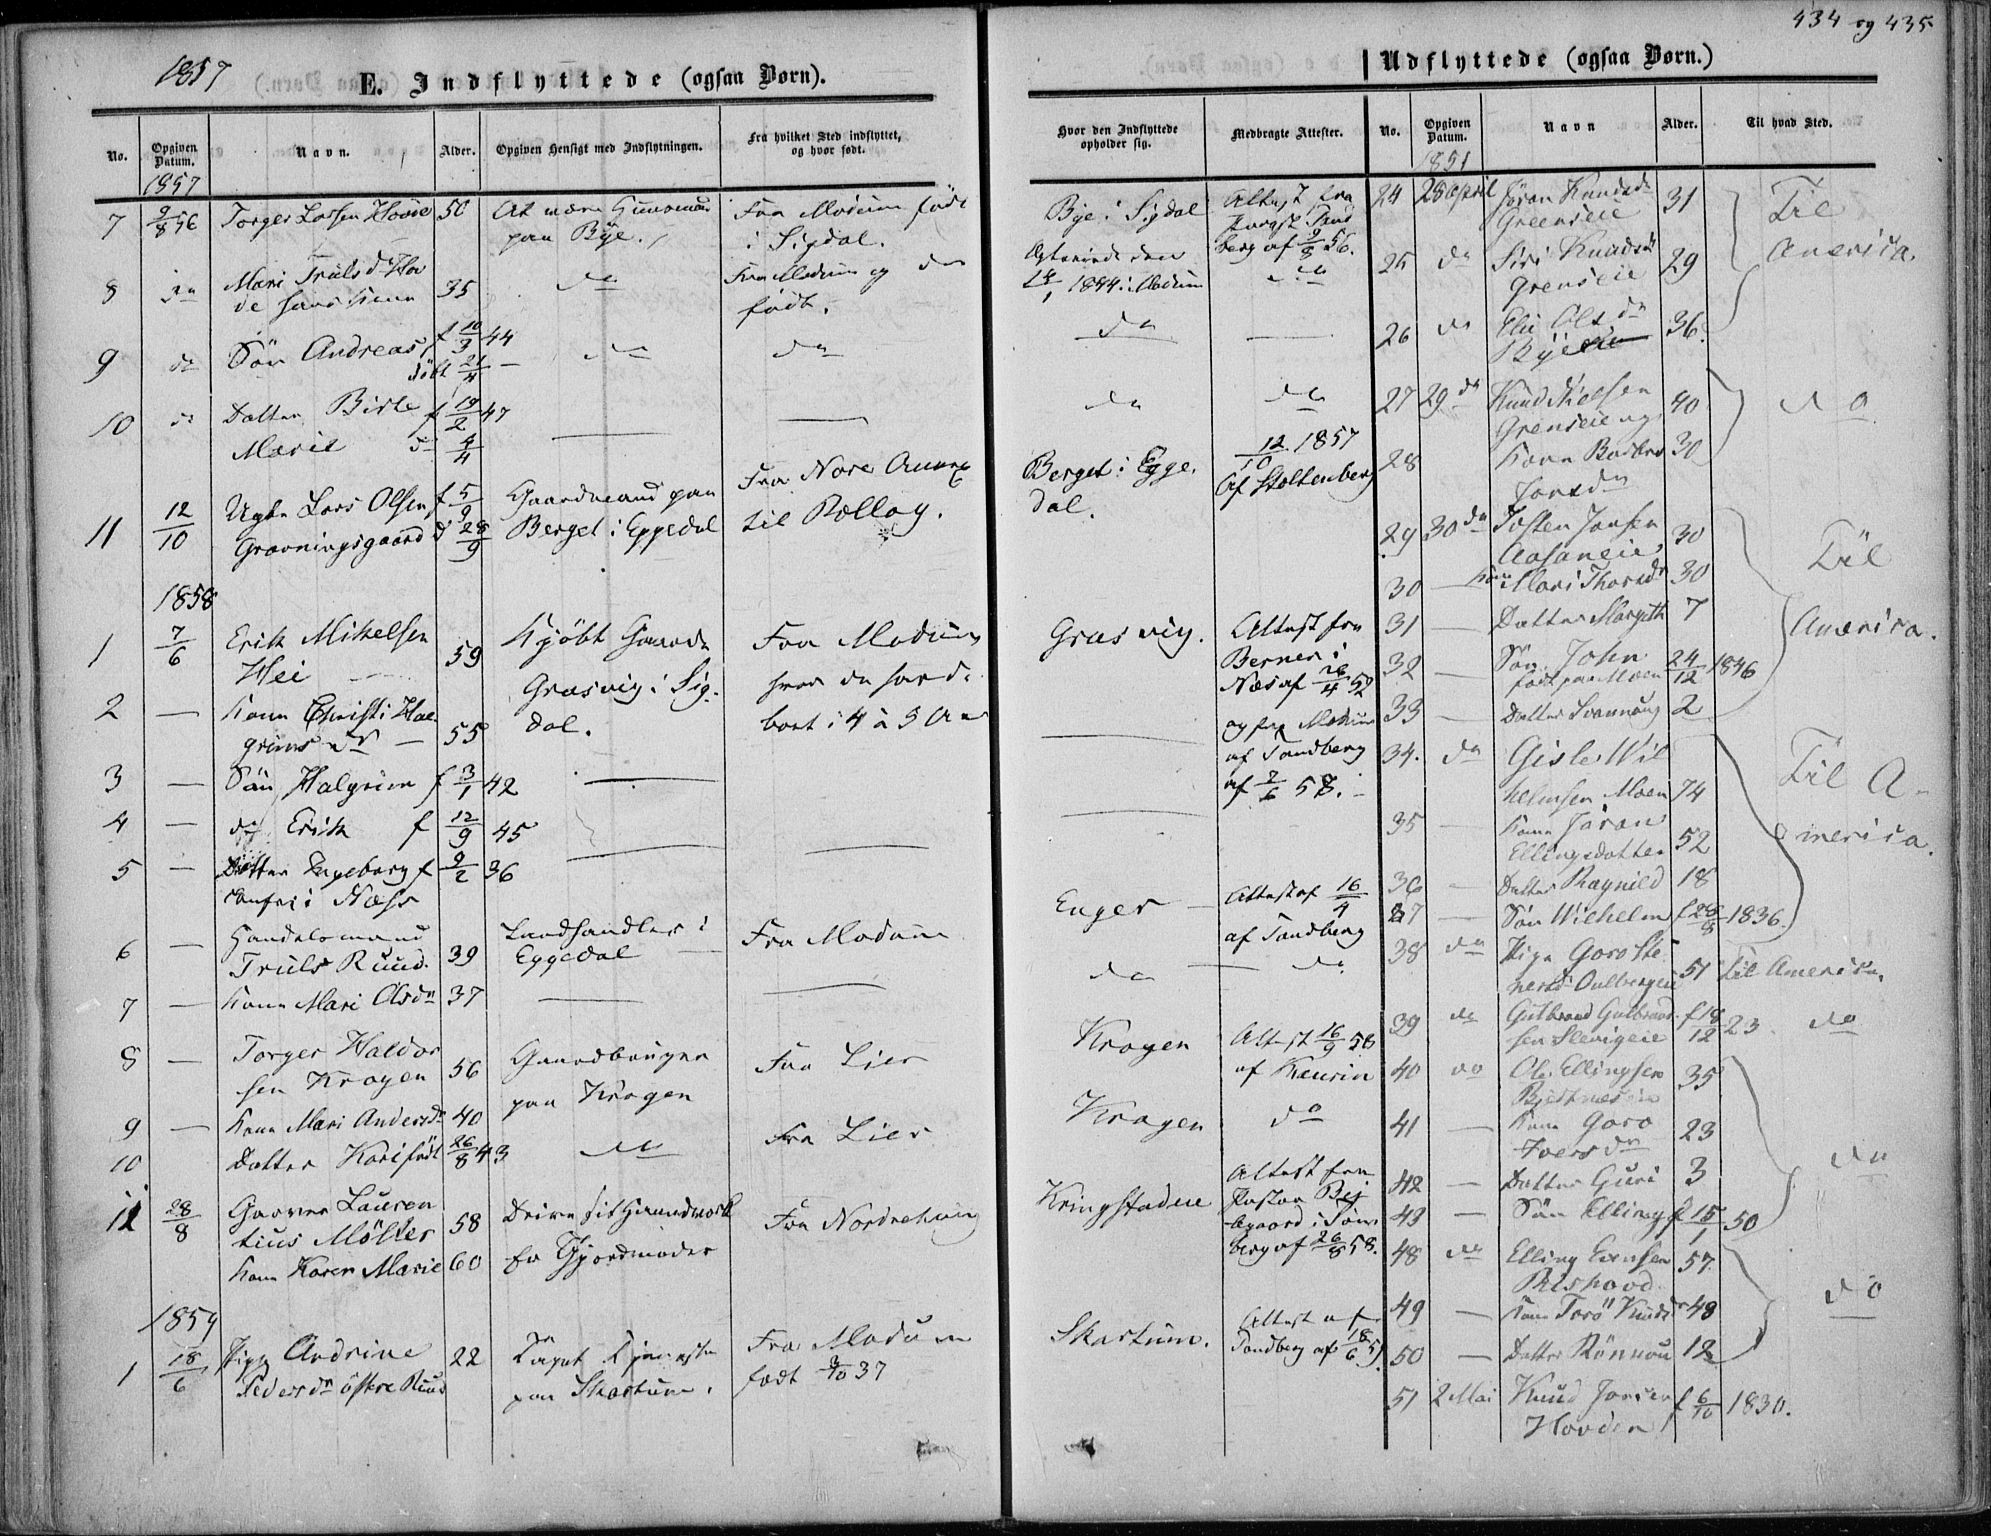 434 og 435
1857
E. Indflyttede (ogsaa Børn).
No.
Opgiven Datum.
Navn.
Alder.
Opgiven Hensigt med Indflytningen.
Fra hvilket Sted indflyttet, og hvor født.
1857
7 9/8 56 Torger Larsen Hovde 50 At være Huusmand Fra Modum født
paa Bye. i Sigdal.
8 do Mari Trulsd. Hov 35 do Fra Modum og do
de hans Kone født.
9 do Søn Andreas f 10/3 44 do do
døbt 21/4
10 do Datter Birte f 19/2 47
Marie 4/4
11 12/10 Ugte Lars Olsen f 5/9 Gaardmand paa Fra Nore Annex
Gravningsgaard d 28/9 Berget i Eggedal til Rollag.
1858
1 7/6 Erik Mikelsen 59 Kjøbt Gaarden Fra Modum
Hei Græsvig i Sig- hvor de havde
2 — Kone Christi Hal- 55 dal. boet i 4 à 5 Aar
grimsdr —
3 — Søn Halgrim f 3/1 42
4 — do Erik f 12/9 45
5 — Datter Ingeborg f 9/2 36
i Næss
6 — Handelsmand 39 Landhandler i Fra Modum
Truls Ruud. Eggedal
7 — Kone Mari Olsdr 37
8 — Torger Haldor 56 Gaardbruger Fra Lier
sen Kragen paa Kragen
9 — Kone Mari Andersdr 40 Fra Lier
10 Datter Kari født 26/8 43 do
11 28/8 Garver Lauren 58 Drive sit Haandverk Fra Nordrehoug
tius Møller
Kone Karen Marie 60
1859
1 18/6 Pige Andrine 22 Tjeneste Fra Modum
Pedersdr østre Ruud paa Skartum. født 3/10 37
Hvor den Indflyttede opholder sig.
Medbragte Attester.
Bye i Sigdal Attest fra
Sand
berg af 9/8 56.
14/1 1844 i Modum
do
do do
Berget i Egge- 12/10 1857
dal. Af Stoltenberg
Græsvig. Attest fra
Berner i
Næs af 26/4 52
og fra Modum
af Sandberg
af 7/6 58.
Enger Attest af 16/4
af Sandberg
do do
Kragen Attest 16/9 58
af Kaurin
Kragen do
Kringstadeie Attest fra
Pastor Bej
gaard i Tøns
berg af 26/8 58.
Skartum. Attest af
Sandberg af 18/6 59
Udflyttede (ogsaa Børn.)
No.
Opgiven Datum.
Navn
Alder.
Til hvad Sted.
1851
24 28 April Jøran Knudsdr 31 Til
Greenseie America.
25 do Siri Knudsdr 29
Grenseie
26 do Eli Olsdr 36.
Byeeie
27 29 do Knud Nielsen 40 do
Grenseie og
28 Kone Barbro 30
Joresdr
29 30 do Tosten Jonsen 30 Til
Aasaneie
30 — Kone Mari Thorsdr 30 America.
31 — Datter Margith 7
32 — Søn John 24/12 1846
født paa Moen
33 — Datter Svanaug 2
34. do Gisle Wil Til A-
helmsen Moen 74
35 — Kone Jøran merica.
Ellingsdatter 52
36 — Datter Ragnild 18
37 — Søn Wilhelm f 28/8 1836.
38 do Pige Goro Ste 51 Til America.
39 do Gulbrand Gulbrand- f 18/12 23 do
sen
40 do Ole Ellingsen 35
41 — Kone Goro 23
Iversdr do
42 — Datter Guri 3
43 — Søn Elling f 15/1 50
48 do Elling Evensen 57.
49 — Kone Torø Knudsdr 48 do
50 — Datter Rønnau 12
51 2 Mai Knud Jonsen f 6/10 1830.
Hovden